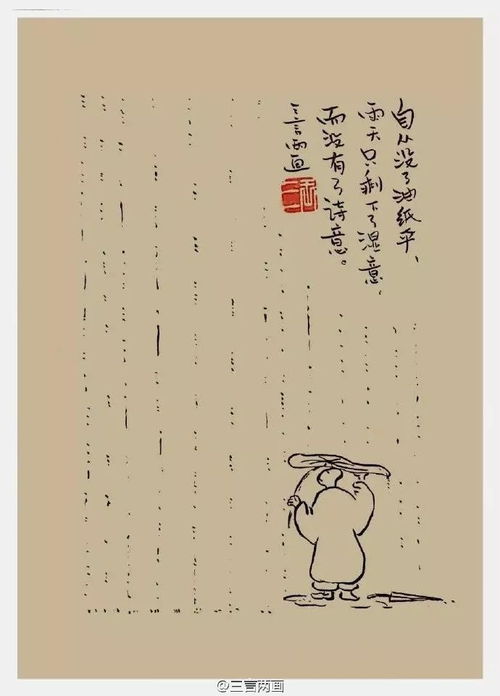 自从没了油纸伞、
雨天只剩下了湿意,
而没有了诗意。
三言两画
@三言两画